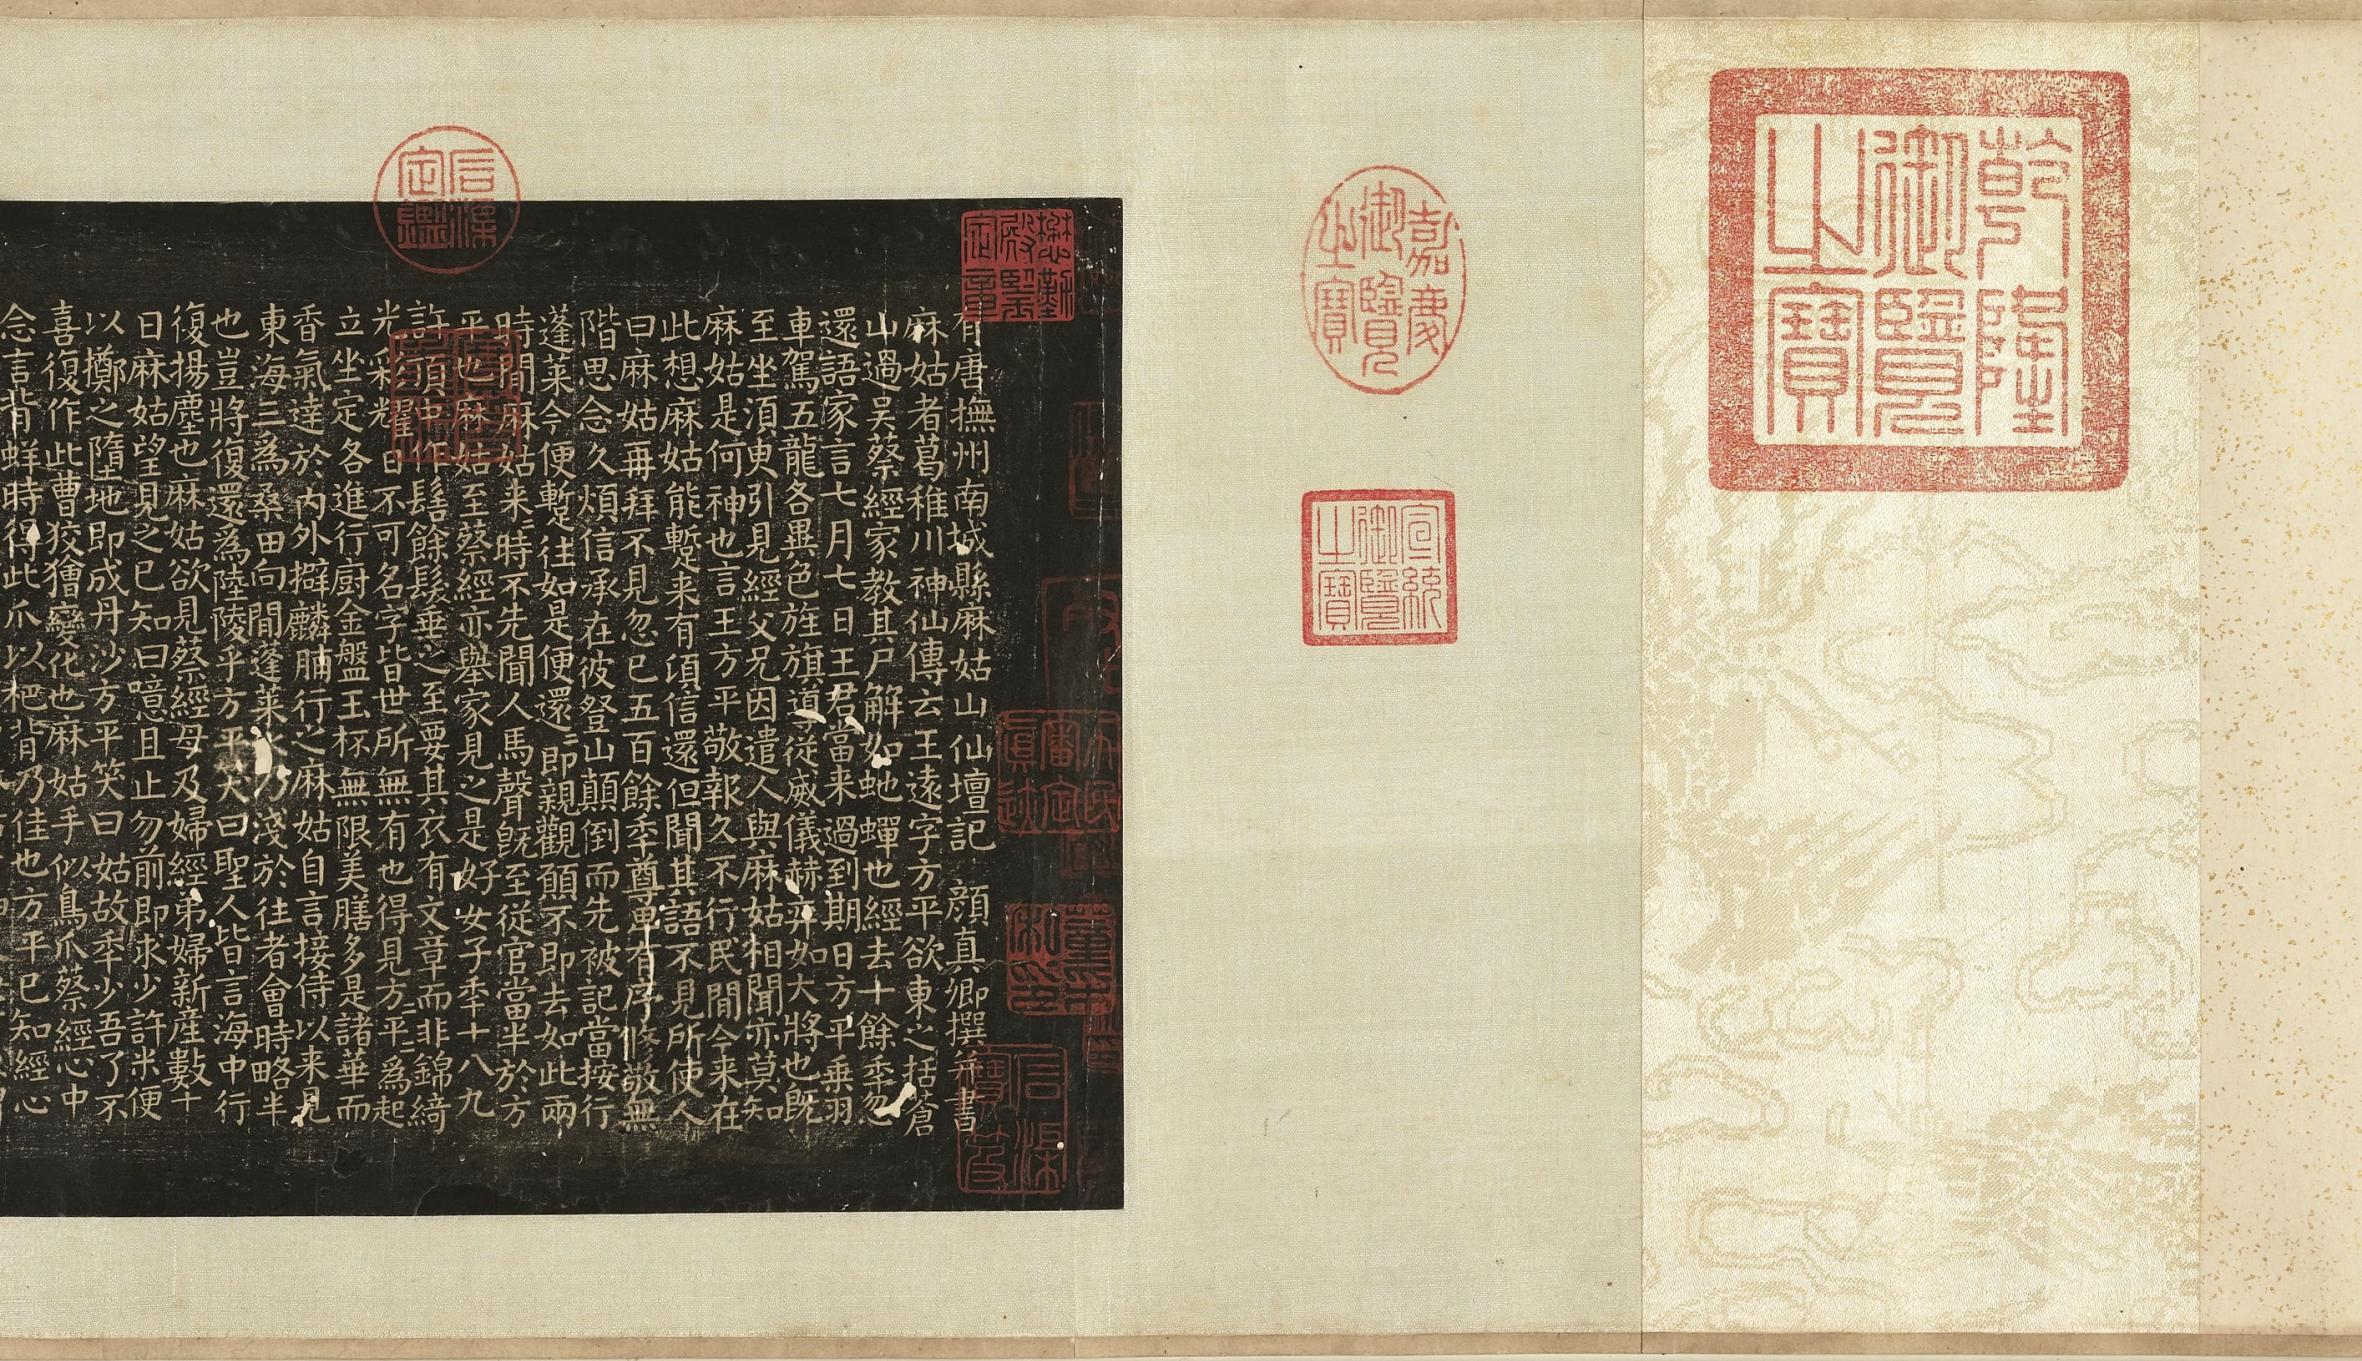 乾隆御覽之寶
嘉慶御覽之寶
宣統御覽之寶
懋勤殿鑒定章
有唐撫州南城縣麻姑山仙壇記 顏真卿撰并書
麻姑者葛稚川神仙傳云王遠字方平欲東之括蒼
山過吳蔡經家教其尸解如虵蟬也經去十餘秊忽
還語家言七月七日王君當来過到期日方平乗羽
車駕五龍各異色旌旗導從威儀赫弈如大將也既
至坐湏臾引見經父兄因遣人與麻姑相聞亦莫知
麻姑是何神也言王方平敬報久不行民間今来在
此想麻姑能蹔来有頃信還但聞其語不見所使人
曰麻姑再拜不見忽已五百餘秊尊卑有序修敬無
階思念久煩信承在彼登山顛倒而先被記當按行
蓬萊今便蹔往如是便還=即親觀願不即去如此兩
時間麻姑来=時不先聞人馬聲既至從官當半於方
平也麻姑至蔡經亦舉家見之是好女子秊十八九
許頂中作髻餘髮垂之至要其衣有文章而非錦綺
光彩耀日不可名字皆世所無有也得見方=平=為起
立坐定各進行廚金盤玉杯無限美膳多是諸華而
香氣達於內外擗麟脯行之麻姑自言接侍以来見
東海三為桒田向間蓬萊水乃淺於往者會時略半
也豈將復還為陸陵乎方平笑曰聖人皆言海中行
復揚塵也麻姑欲見蔡經母及婦經弟婦新產數十
日麻姑望見之已知曰噫且止勿前即求少許米便
以擲之墮地即成丹沙方平笑曰姑故秊少吾了不
喜復作此曹狡獪變化也麻姑手似鳥爪蔡經心中
念言背蛘時得此爪以杷背乃佳也方平已知經心